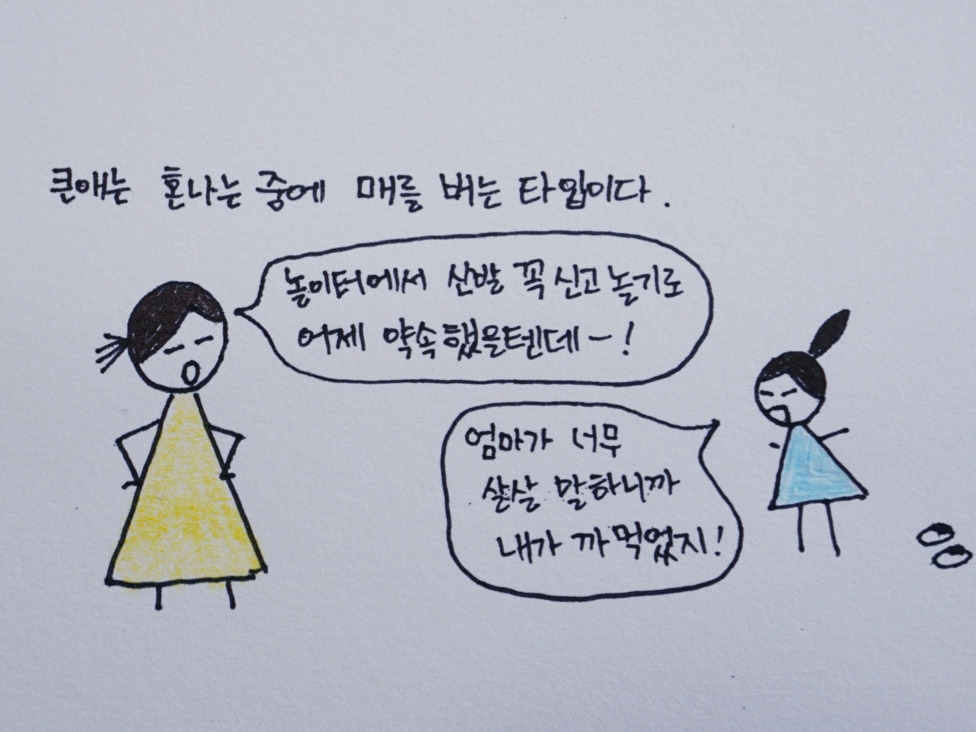 큰애는 혼나는 중에 매를 버는 타입이다.
놀이터에서 신발 꼭 신고 놀기로
어제 약속했을텐데-!
엄마가 너무
살살 말하니까
내가 까먹었지!